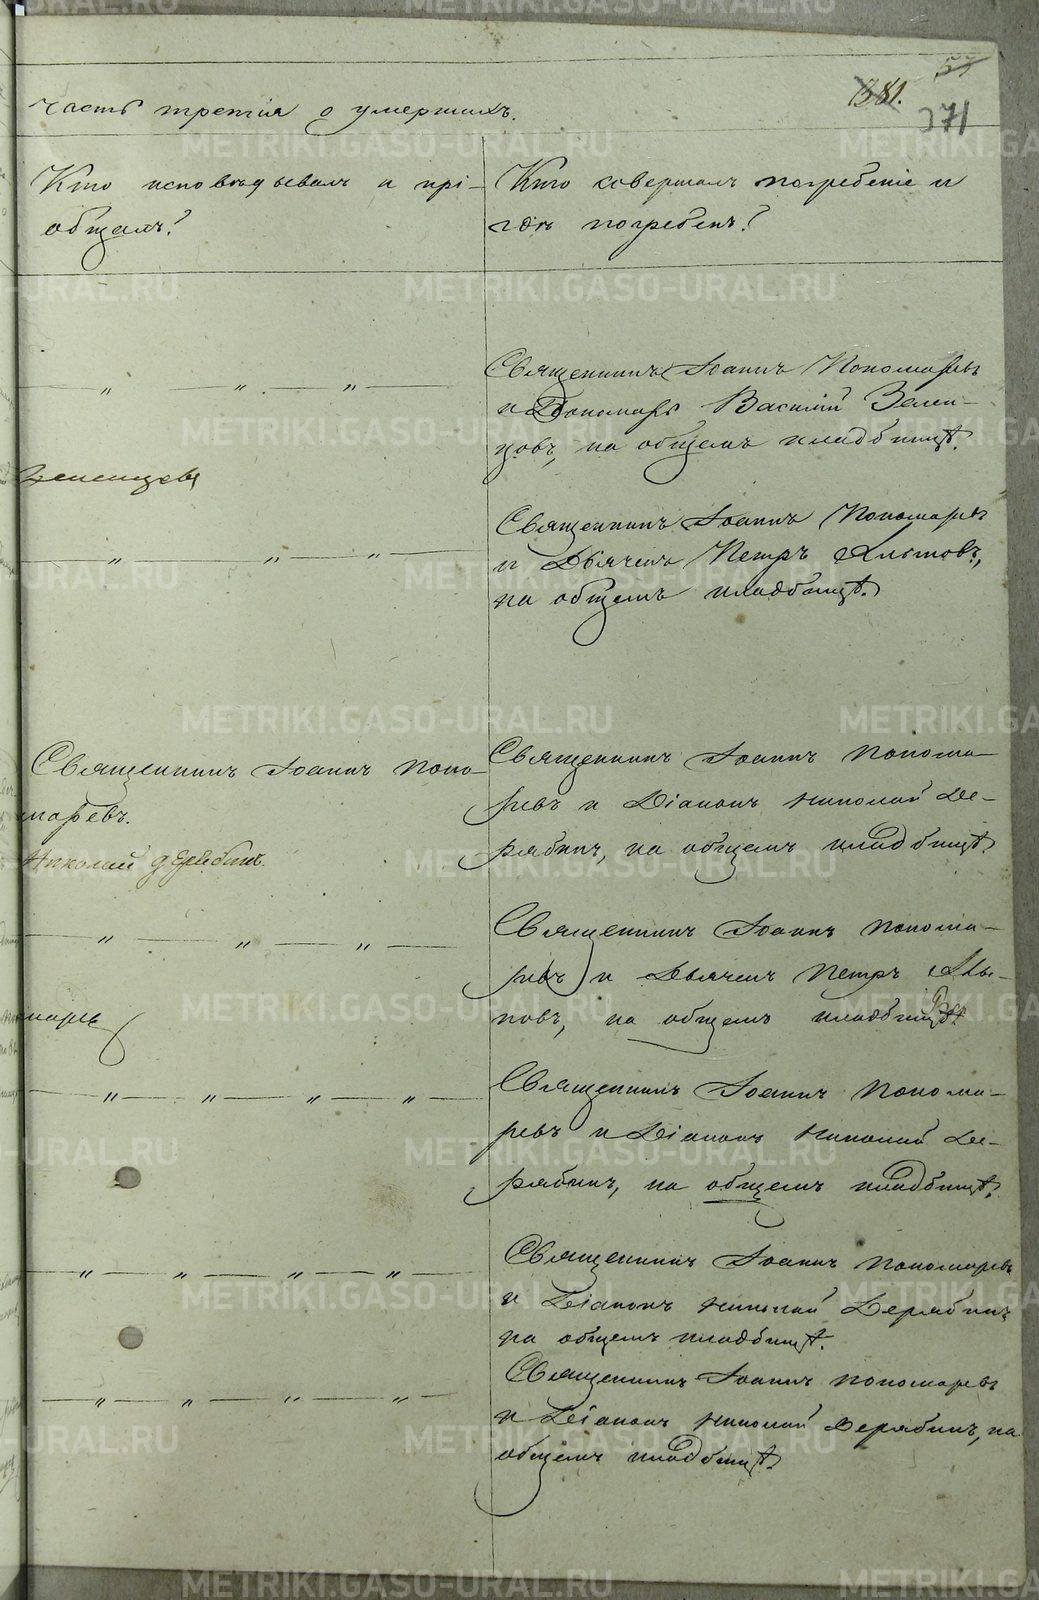 57
381.
371
часть третія о умершихъ.
Кто исповѣдывалъ и прі-
общалъ?
Кто совершалъ погребеніе и
гдѣ погребенъ?
Священникъ Іоаннъ Пономаревъ
и Пономарь Василій Зелен-
цовъ, на общемъ кладбищѣ.
Зеленцовъ
Священникъ Іоаннъ Пономаревъ
и Дьячекъ Петръ
на общемъ кладбищѣ.
Священникъ Іоаннъ Поно-
маревъ.
Николай Дерябинъ.
Священникъ Іоаннъ Понома-
ревъ и Діаконъ Николай Де-
рябинъ, на общемъ кладбищѣ.
Священникъ Іоаннъ Понома-
ревъ и Дьячекъ Петръ
на общемъ кладбищѣ.
Священникъ Іоаннъ Понома-
ревъ и Діаконъ Николай Де-
рябинъ, на общемъ кладбищѣ.
Священникъ Іоаннъ Пономаревъ
и Діаконъ Николай Дерябинъ
на общемъ кладбищѣ.
Священникъ Іоаннъ Пономаревъ
и Діаконъ Николай Дерябинъ, на
общемъ кладбищѣ.
METRIKI.GASO-URAL.RU